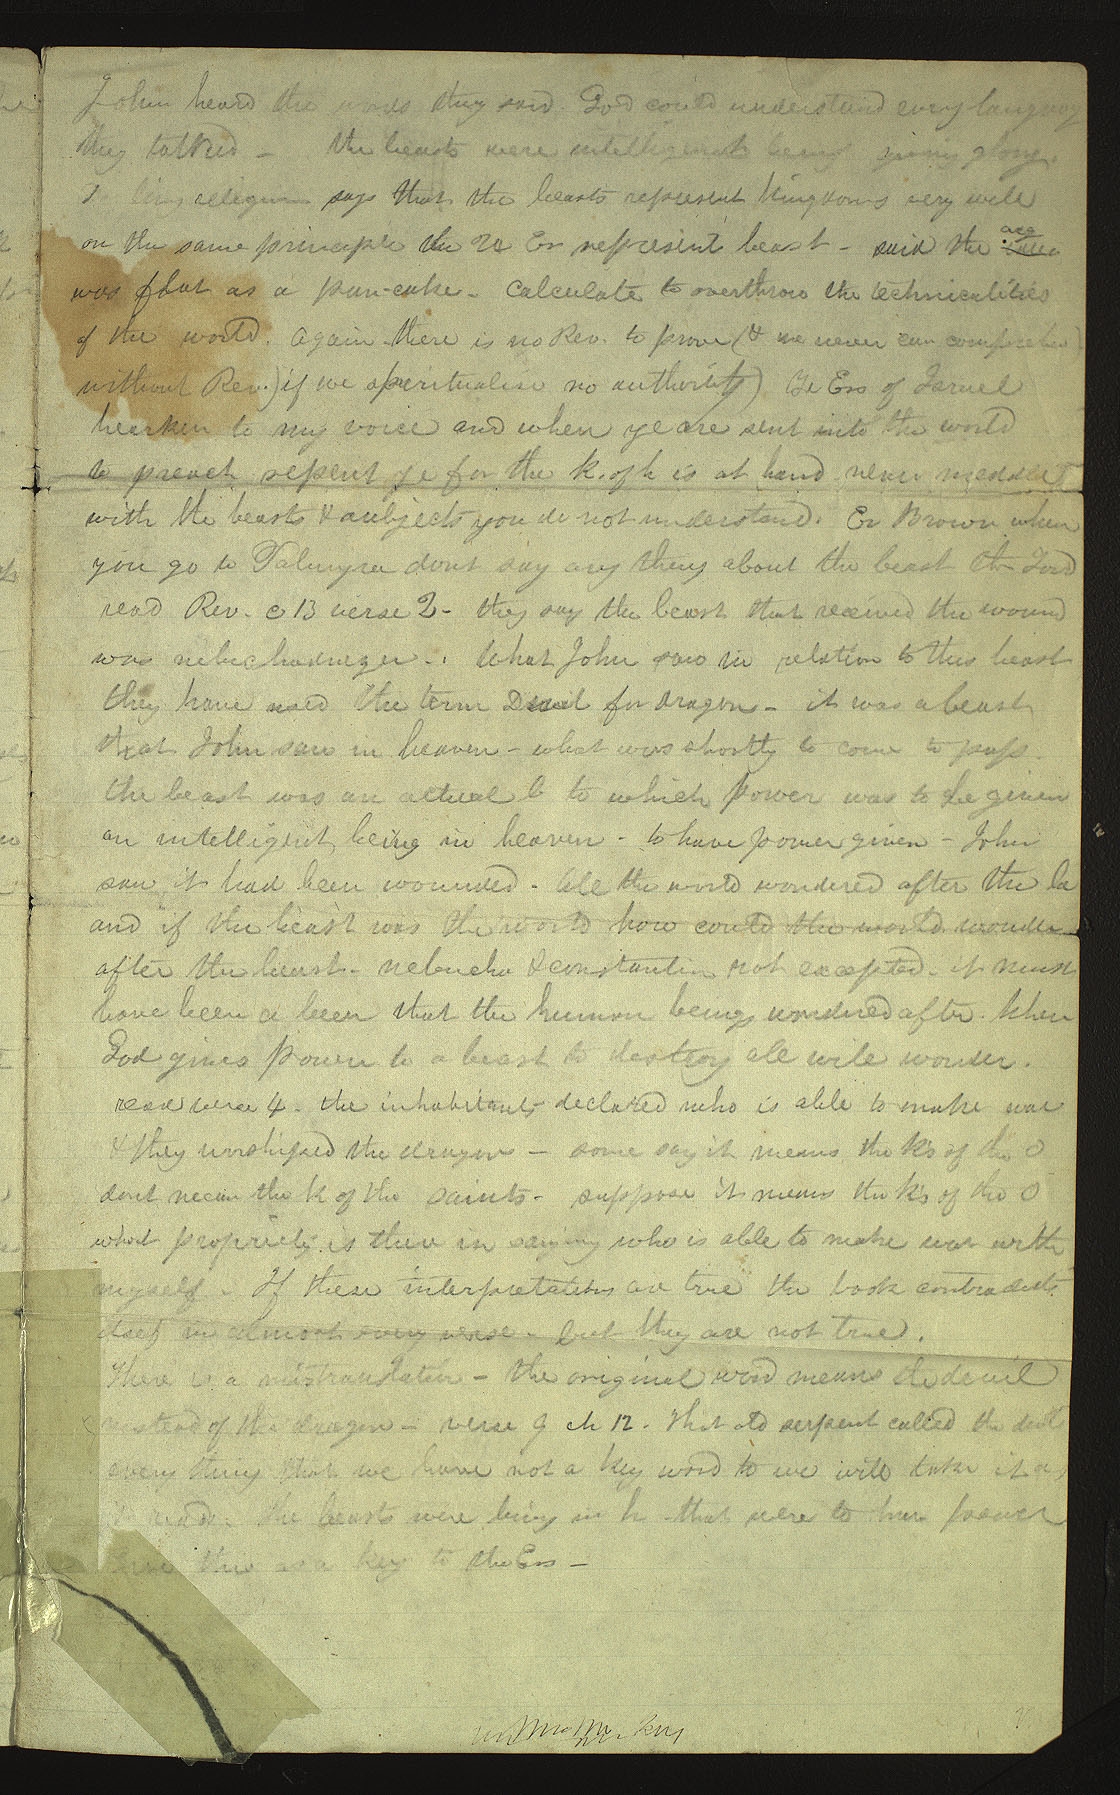 John heard the words they said. God could understand every languag
they talked - the beasts were intelligent being giving glory.
religion says that the beasts represent kingdoms very well
on the same principle the 24 Ers represent beast - said the are
was flat as a pan-cake - calculate to overthrow the technicalities
of the world. again there is no Rev. to prove (& we never can comprehend
without Rev.) if we spiritualise no authority) Ye Ers of Israel
hearken to my voice and when ye are sent into the world
to preach repent ye for the k. of h is at hand never meddle
with the beasts & subjects you do not understand. Er Brown when
you go to Palmyra dont say any thing about the beast
read Rev. c 13 verse 2 - they say the beast that received the wound
was nebuchadnezer -. What John saw in relation to this beast
they have used the term Devil for dragon - it was a beast
that John saw in heaven - what was shortly to come to pass.
the beast was an actual b to which power was to be given
an intelligent being in heaven - to have power given - John
saw it had been wounded - All the world wondered after the be
and if the beast was the world how could the world wonder
after the beast - nebucha & constantin not excepted - it must
have been a been that the human beings wondered after. When
God gives power to a beast to destroy all will wonder.
read verse 4 - the inhabitants declared who is able to make war
& they worshiped the dragon - some say it means the k's of the O
dont mean the k of the saints - suppose it means the k's of the O
what propriety is there in saying who is able to make war with
myself - If these interpretations are true the book contradicts
itself in almost every verse - but they are not true.
There is a mistranslation - the original word means the devil
instead of the dragon - verse 9 ch 12. that old serpent called the devil
every thing that we have not a key word to we will take it as
read. the beasts were being in h that were to have power
this as a key to the Ers -